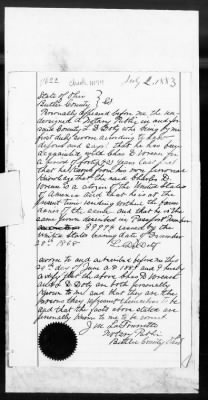 1622
July 2, 1883
State of Ohio
Butler County } SS
Personally appeared before me the un-
dersigned a Notary Public in and for
said County L. D. Doty who being by me
first duly sworn according to law
deposes and says: that he has been
acquainted with Chas D.
for a period of forty years last
that he knows from his own personal
knowledge that the said Charles D.
is a citizen of the United States
of America and that he is at the
present time residing within the
of the same and that he is the
same person described in Passport Number
99999 issued by the
United States bearing date of December
28th 1868
L. D. Doty
Sworn to and subscribed before me this
29th day of June A D 1883 and I hereby
certify that the above Chas D.
and L. D. Doty are both personally
known to me and that they are the
persons they represent themselves to be
and that the facts above stated are
personally known to me to be correct
J. M.
Notary Public
Butler County Ohio